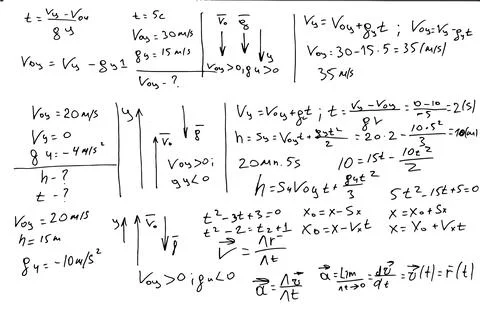 t = (Vy - Voy) / gy
t = 5c
Voy = 30 m/s
gy = 15 m/s
Voy = Vy - gy1
Voy - ?
V̄o ḡ
y
Voy > 0, gy > 0
Vy = Voy + gyt ; Voy = Vy - gyt
Voy = 30 - 15 · 5 = 35 (m/s)
35 m/s
Voy = 20 m/s
Vy = 0
gy = -4 m/s²
h - ?
t - ?
y
V̄o ḡ
Voy > 0;
gy < 0
Vy = Voy + gyt ; t = (Vy - Voy) / gy = (0 - 10) / -5 = 2 (s)
h = Sy = Voyt + gyt² / 2 = 20 · 2 - 10 · 5² / 3 = 10 (m)
20 Mn. 5s
10 = 15t - 10t² / 2
h = S4 Voyt + g4t² / 3
5t² - 15t + 5 = 0
Voy = 20 m/s
h = 15 m
gy = -10 m/s²
y
V̄o
ḡ
Voy > 0 ; gy < 0
t² - 3t + 3 = 0
t² - 2 = t2 + 1
V⃗ = Λr⃗ / Λt
Xo = X - Sx
X = Xo + Sx
Xo = X - Vxt
X = Xo + Vxt
a⃗ = Λv⃗ / Λt
a⃗ = Lim Λt→0 = dv⃗ / dt = v̄(t) = r̄(t)